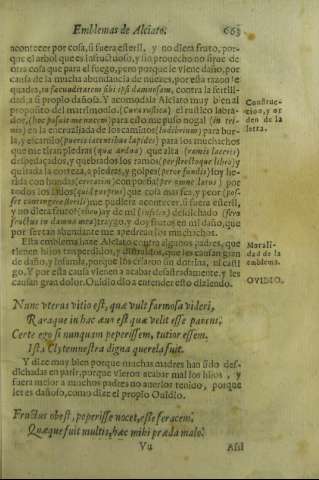 Emblemas de Alciato. 665
acontecer por cosa, si fuera esteril, y no diera fruto, por-
que el arbol que es infructuoso, y sin prouecho no sirue de
otra cosa que para el fuego, pero porque le viene daño, por
causa de la mucha abundancia de nuezes, por esta razon se
quadra, in fœcunditatem sibi ipsi damnosam, contra la fertili-
dad, a si propio dañosa. Y acomodala Alciato muy bien al
proposito del matrimonio. (Cura rustica) el rustico labra-
dor, (hoc posuit me nucem) para esto me puso nogal (in tri-
uio) en la encruzijada de los caminos (ludibrium) para bur-
la, y escarnio (pueris iacentibus lapides) para los muchachos
que me tiran piedras (quæ ardua) que alta (ramis laceris)
despedaçados, y quebrados los ramos (perstrictoque libro) y
quitada la corteza, a piedras, y golpes (petor fundis) soy he-
rida con hondas (certatim) con porfia (per omne latus) por
todos los lados (quid turpius) que cosa mas fea, y peor (pos-
set contingere sterili) me pudiera acontecer, si fuera esteril,
y no diera fruto? (eheu) ay de mi (infelix) desdichado (fero
fructus in damna mea) traygo, y doy frutos en mi daño, que
por ser tan abundante me apedrean los muchachos.
Esta emblema haze Alciato contra algunos padres, que
tienen hijos traspuestos, y distraidos, que les causan gran
de daño, y infamia, porque los criaron sin dotrina, ni casti
go. Y por esta causa vienen a acabar desastradamente, y les
causan gran dolor. Ouidio dio a entender esto diziendo.
Nunc vterus vitio est, quæ vult formosa videri,
Raraque in hac æuo est quæ velit esse parens.
Certe ego si nunquam peperissem, tutior essem.
Ista Clytemnestra digna querela fuit.
Y dize muy bien porque muchas madres han sido des-
dichadas en parir, porque vieron acabar mal los hijos, y
fuera mejor a muchos padres no auerlos tenido, porque
les es dañoso, como dize el propio Ouidio.
Fructus obest, peperisse nocet, esse feracem.
Quæque fuit multis, hæc mihi præda malo.
Vu Assi
Construc-
cion, y or
den de la
letra.
Morali-
dad de la
emblema.
OVIDIO.